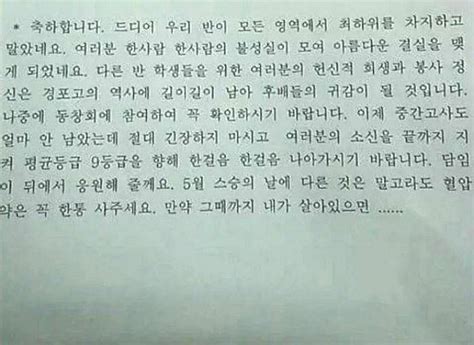 * 축하합니다. 드디어 우리 반이 모든 영역에서 최하위를 차지하고
말았네요. 여러분 한사람 한사람의 불성실이 모여 아름다운 결실을 맺
게 되었네요. 다른 반 학생들을 위한 여러분의 헌신적 희생과 봉사 정
신은 경포고의 역사에 길이길이 남아 후배들의 귀감이 될 것입니다.
나중에 동창회에 참여하여 꼭 확인하시기 바랍니다. 이제 중간고사도
얼마 안 남았는데 절대 긴장하지 마시고 여러분의 소신을 끝까지 지
켜 평균등급 9등급을 향해 한걸음 한걸음 나아가시기 바랍니다. 담임
이 뒤에서 응원해 줄께요. 5월 스승의 날에 다른 것은 말고라도 혈압
약은 꼭 한통 사주세요. 만약 그때까지 내가 살아있으면 ......